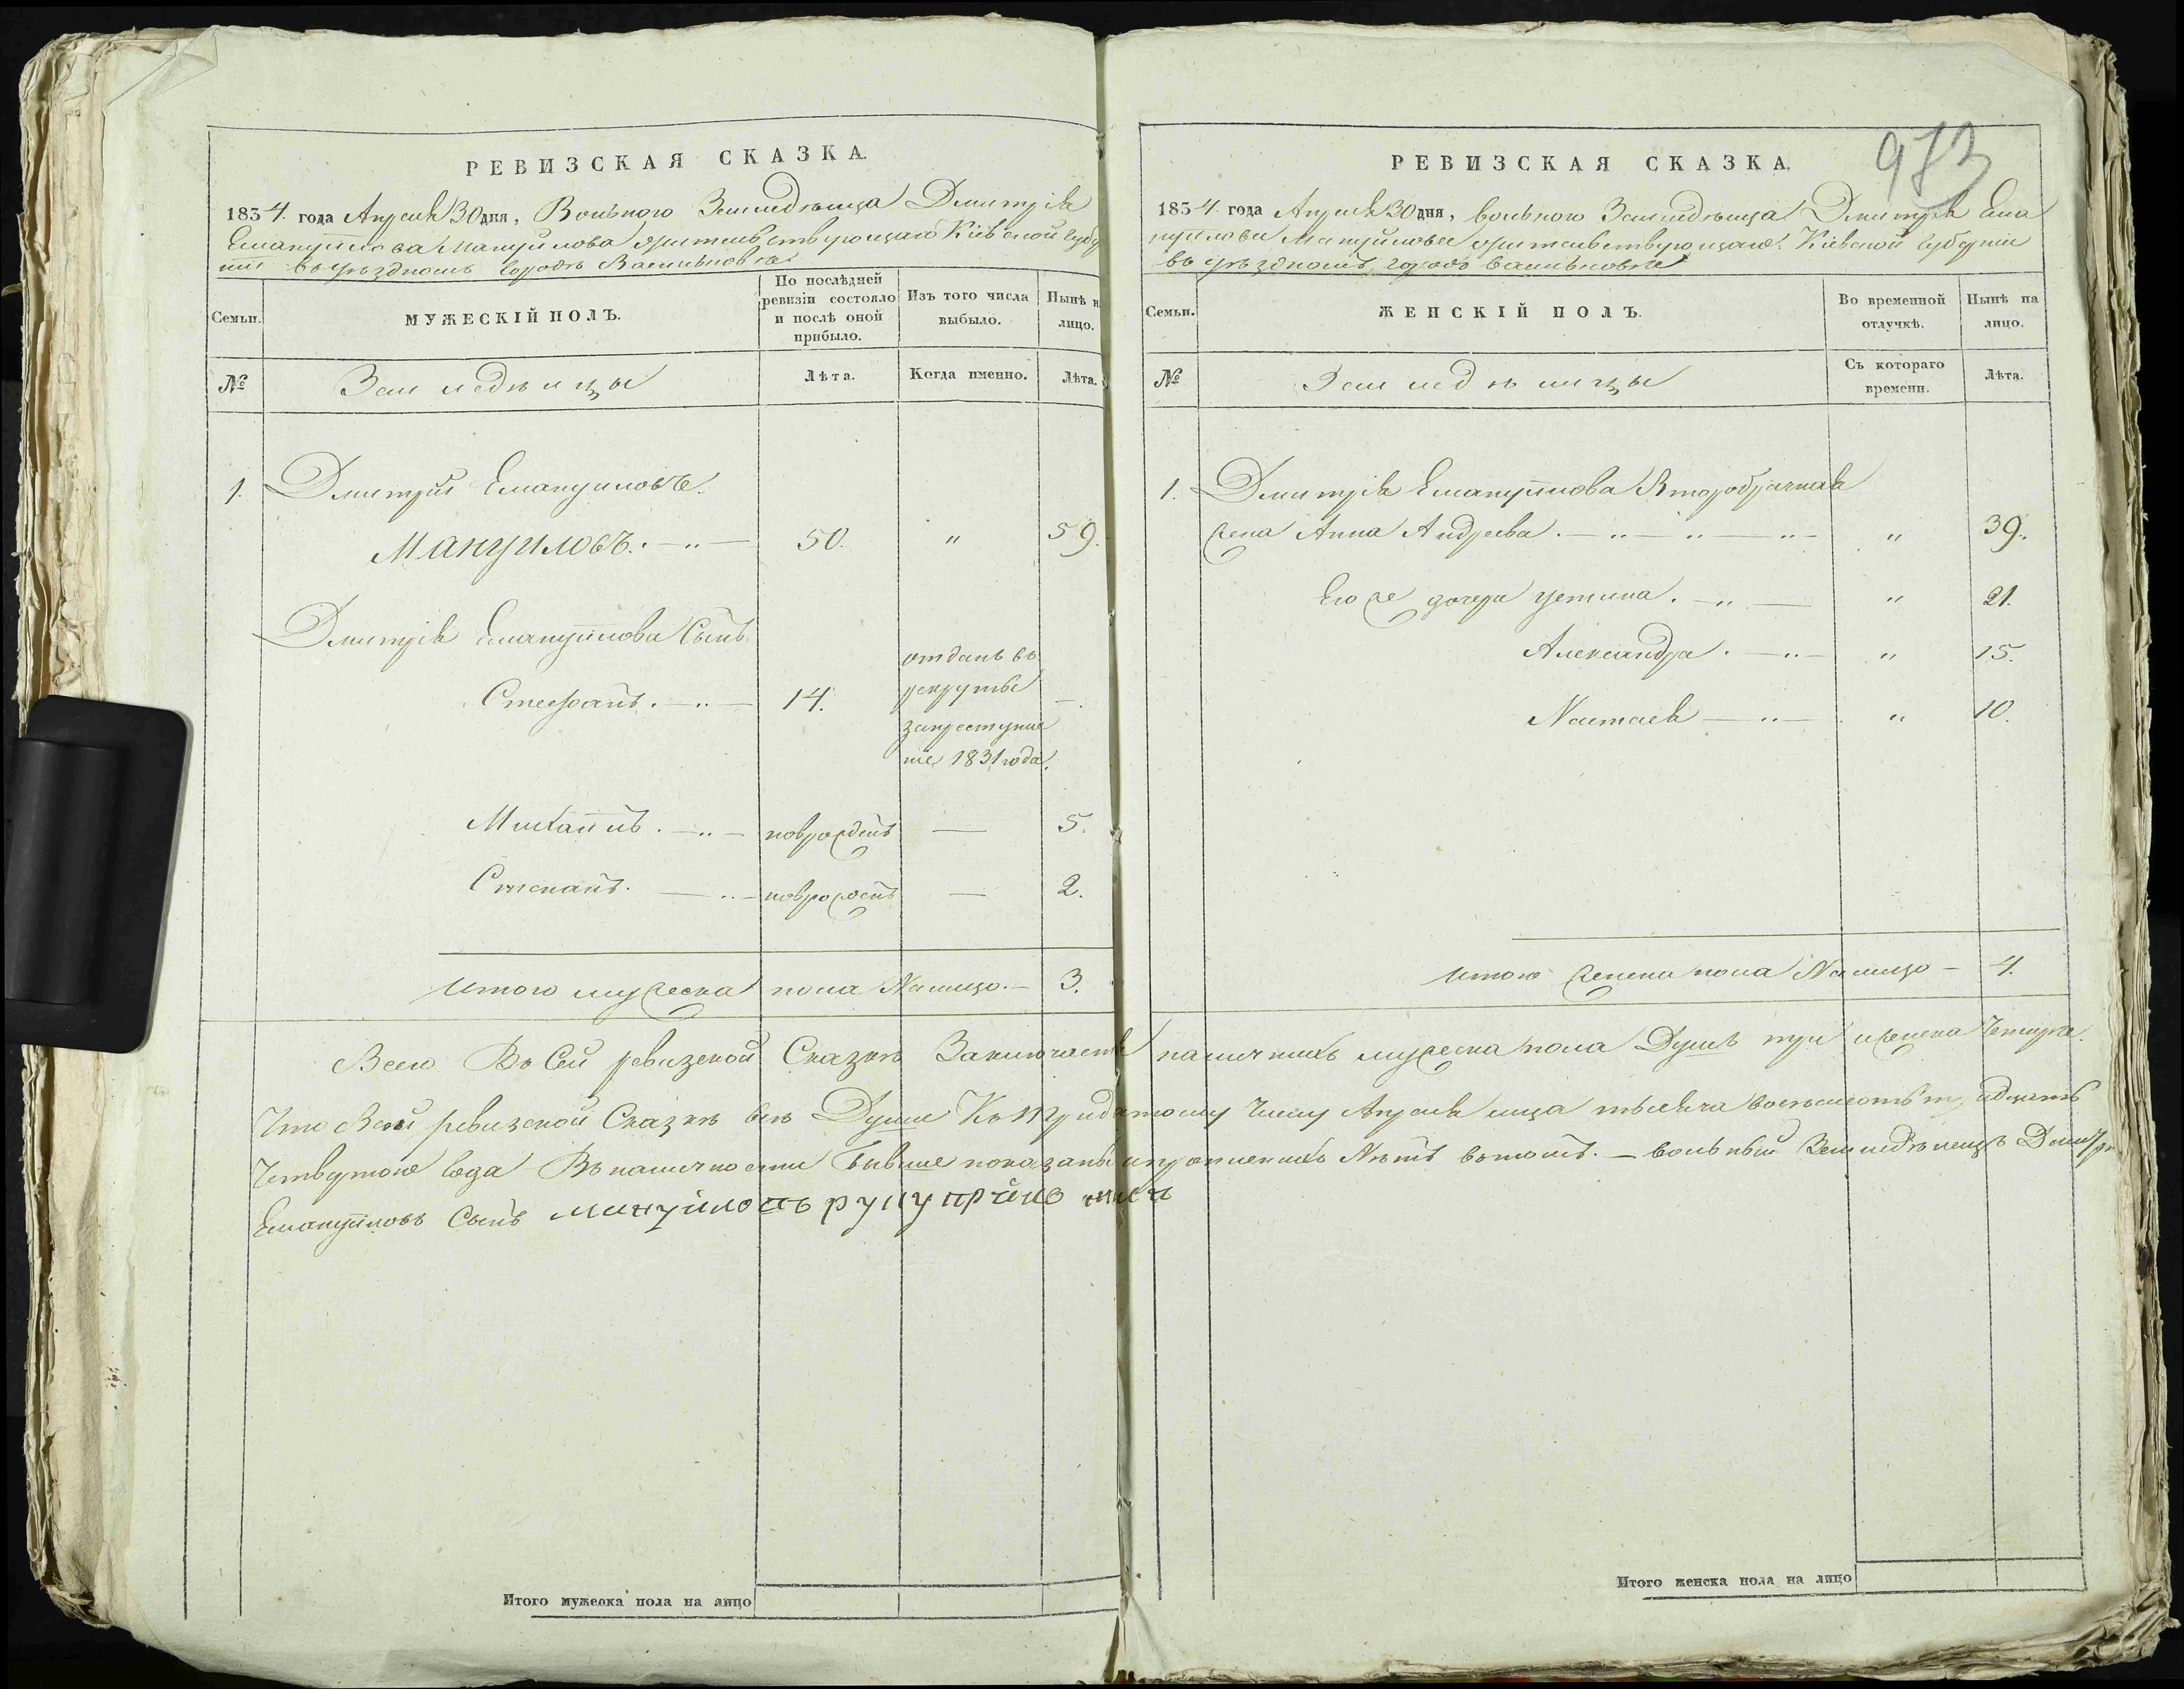 РЕВИЗСКАЯ СКАЗКА.
1834. года Апреля 30 дня, Вольного Земледельца Дмитрія
Емануйлова Мануйлова жительствующаго Кіевской Губер
ніи въ уездномъ городе Василькове
Семьи.
МУЖЕСКІЙ ПОЛЪ.
По послѣдней ревизіи состояло и послѣ оной прибыло.
Изъ того числа выбыло.
Нынѣ н лицо.
№
Земледельцы
Лѣта.
Когда именно.
Лѣта.
1. Дмитрій Емануиловъ
Мануиловъ. 50. " 59.
Дмитрія Емануйлова Сынъ
Стефанъ. 14. отданъ въ
рекруты
запреступле
ніе 1831 года.
Михаилъ. новрожденъ — 5.
Степанъ. новрожденъ — 2.
Итого мужеска пола Налицо. 3.
РЕВИЗСКАЯ СКАЗКА.
973
1834. года Апреля 30 дня, вольного Земледельца Дмитрія Ема
нуйлова Мануйлова жительствующаго Кіевской Губерніи
въ уездномъ городе Василькове
Семьи.
ЖЕНСКІЙ ПОЛЪ.
Во временной отлучкѣ.
Нынѣ на лицо.
№
Земледельцы
Съ котораго времени.
Лѣта.
1. Дмитрія Емануйлова Второбрачная
жена Анна Андреева. " 39.
Его же дочери Устина. " 21.
Александра. " 15.
Настася " 10.
Итого женска пола Налицо 4.
Всего Въ Сей ревизской Сказкѣ Заключается наличныхъ мужеска пола Душъ три и женска Четыре.
Что въ сей ревизской Сказке все Души Къ тридатому числу Апреля мца тысяча восемьсотъ тридцать
Четвертого Года Въ наличности Бывше показаны и прописныхъ Нетъ въ томъ. — вольный Земледелецъ Дмитри
Емануиловъ Сынъ Мануйловъ руку
Итого мужеска пола на лицо
Итого женска пола на лицо